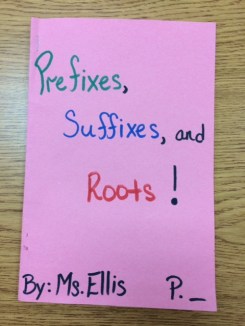 Prefixes,
Suffixes, and
Roots !
By: Ms. Ellis P. _